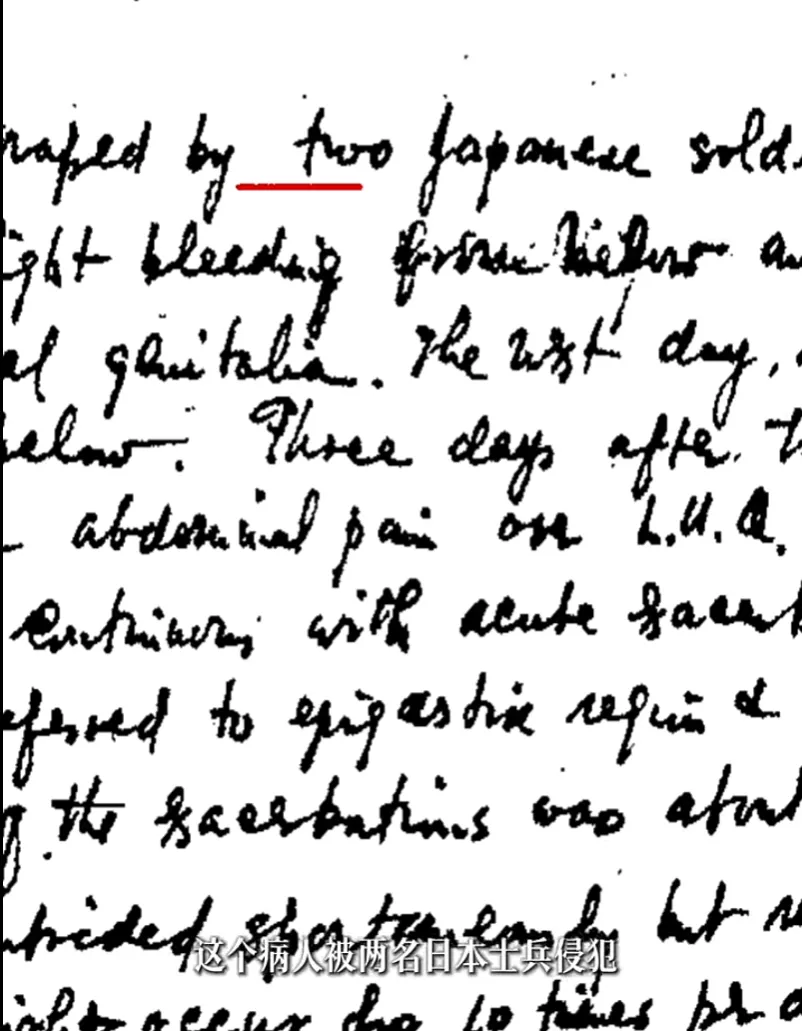 raped by two Japanese sold
ight bleeding from below an
al genitalia. The next day,
below. Three days after, th
- abdominal pain on L.U.Q.
continuous with acute exacerb
eferred to epigastric region &
g the exacerbations was about
ubsided spontaneously but
这个病人被两名日本士兵侵犯
occur 10 times